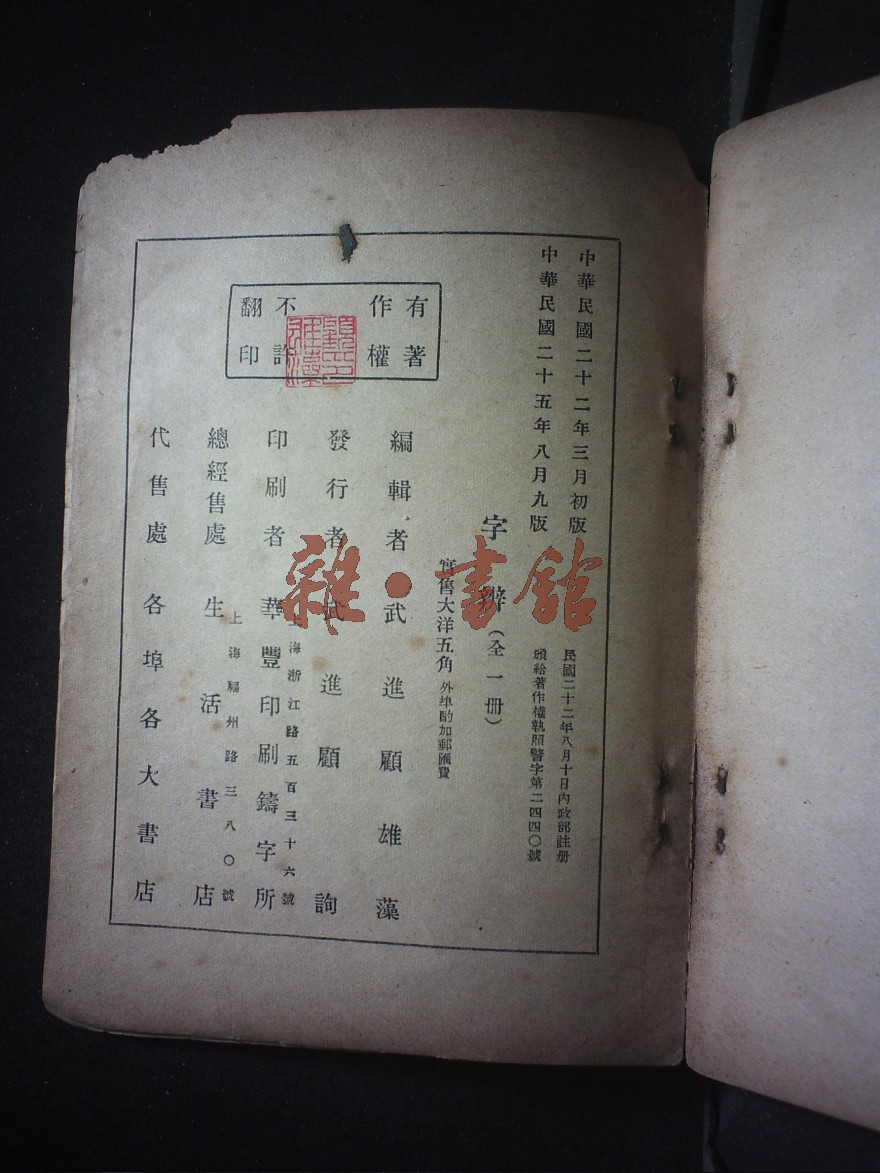 中華民國二十二年三月初版
中華民國二十五年八月九版
民國二十二年八月十日內政部註册
頒給著作權執照警字第二四四〇號
字辨(全一册)
實售大洋五角
外埠酌加郵匯費
有著
作權
不許
翻印
編輯者 武進顧雄藻
發行者 武進顧詢
印刷者 華豐印刷鑄字所
上海浙江路五百三十六號
總經售處 生活書店
上海福州路三八〇號
代售處 各埠各大書店
雜·書館